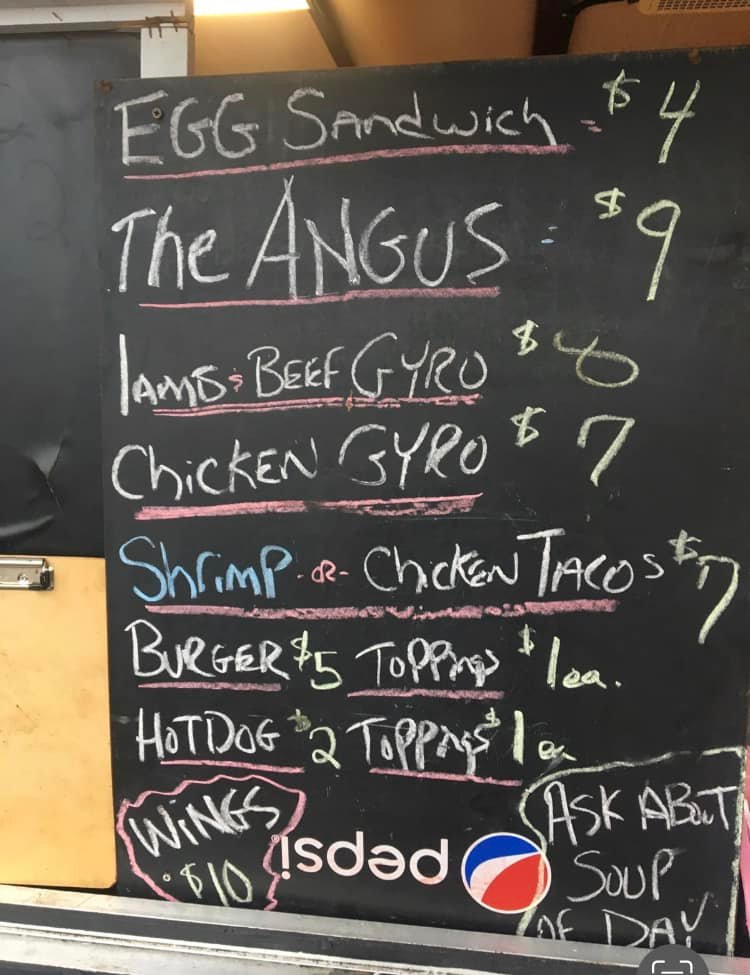 EGG SANDWICH = $4
The ANGUS = $9
LAMB & BEEF GYRO $8
CHICKEN GYRO $7
SHRIMP -OR- CHICKEN TACOS $7
BURGER $5 TOPPINGS $1 ea.
HOTDOG $2 TOPPINGS $1 ea
WINGS
$10
pepsi
ASK ABOUT
SOUP
OF DAY